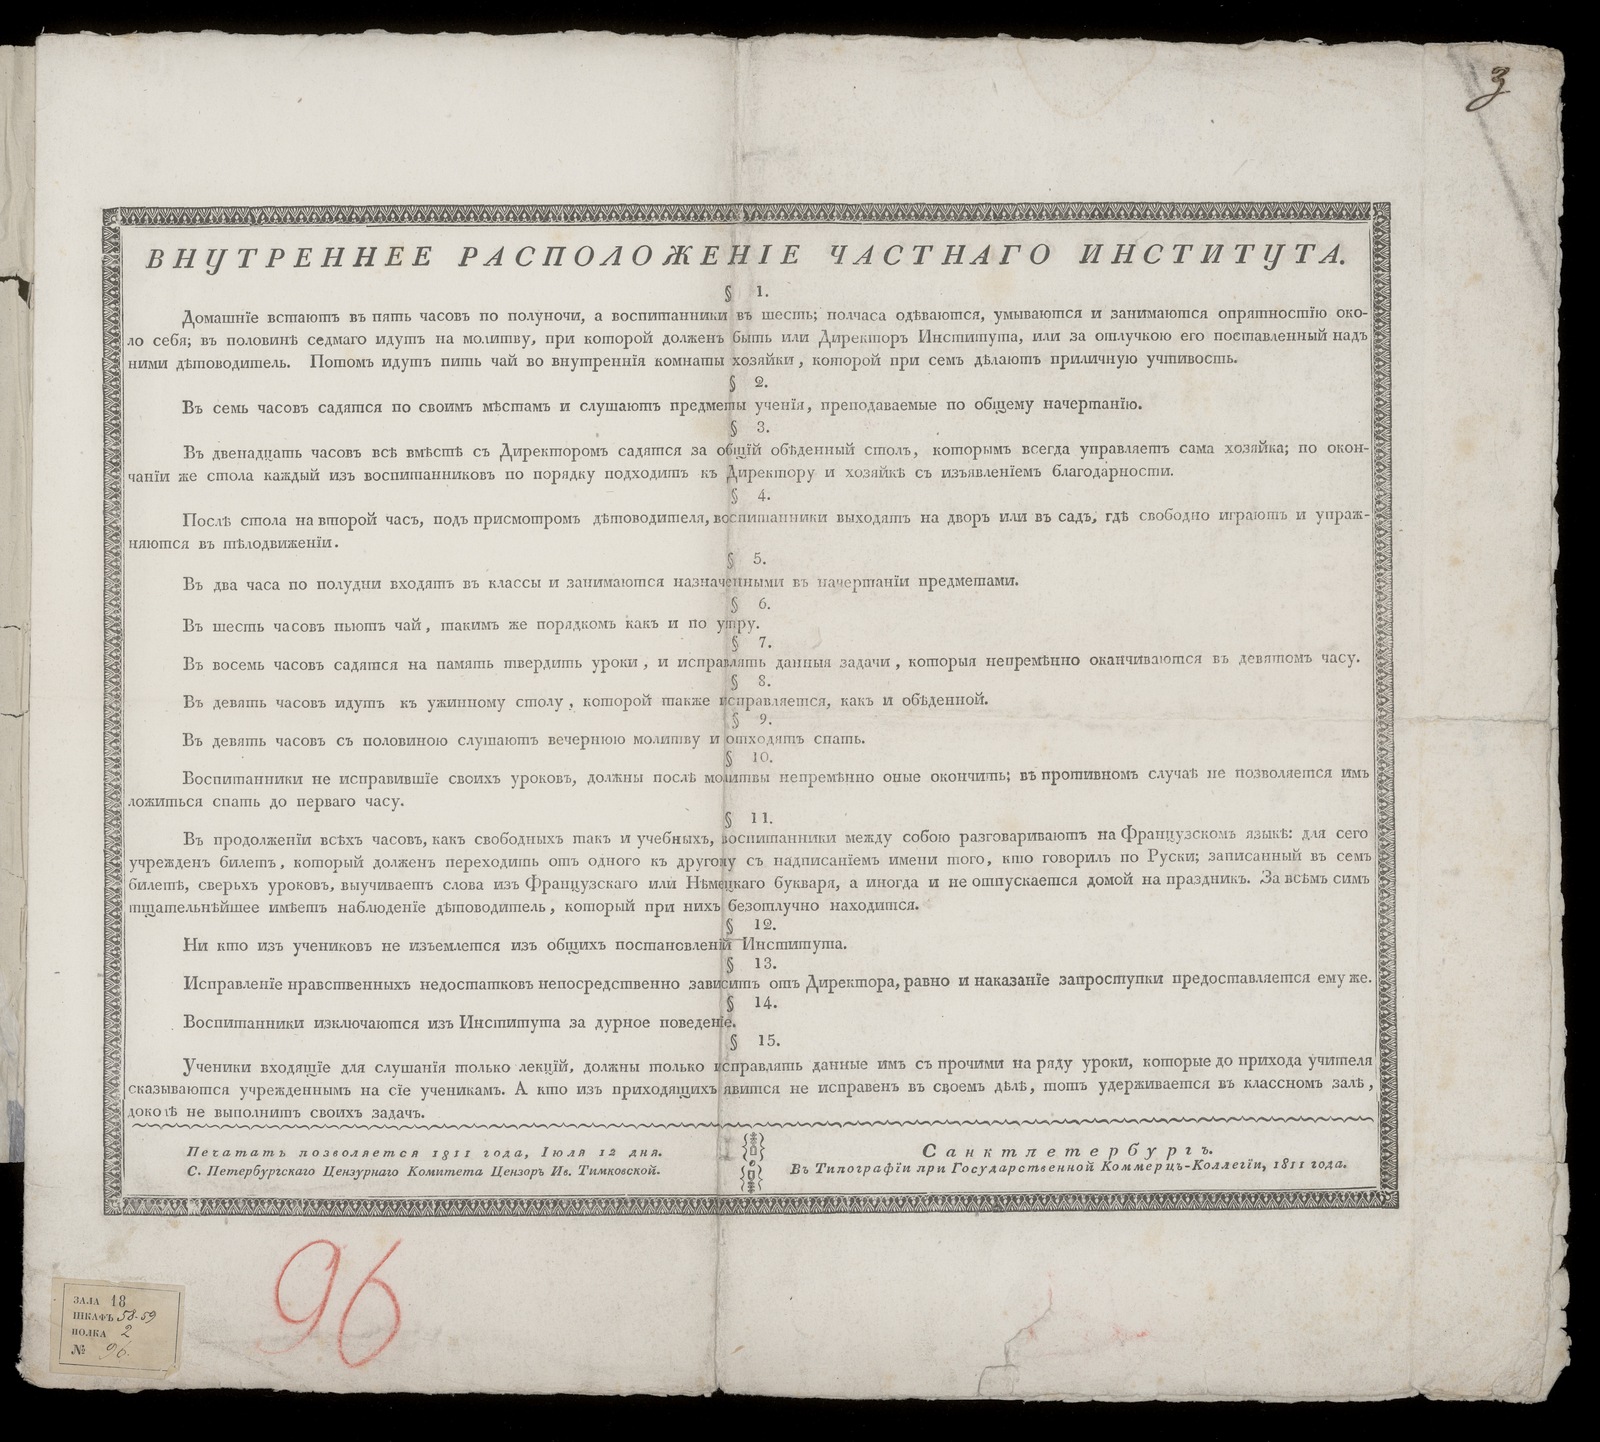 3
ВНУТРЕННЕЕ РАСПОЛОЖЕНІЕ ЧАСТНАГО ИНСТИТУТА.
§ 1.
Домашніе встаютъ въ пять часовъ по полуночи, а воспитанники въ шесть; полчаса одѣваются, умываются и занимаются опрятностію око-
ло себя; въ половинѣ седмаго идутъ на молитву, при которой долженъ быть или Директоръ Института, или за отлучкою его поставленный надъ
ними дѣтоводитель. Потомъ идутъ пить чай во внутреннія комнаты хозяйки, которой при семъ дѣлаютъ приличную учтивость.
§ 2.
Въ семь часовъ садятся по своимъ мѣстамъ и слушаютъ предметы ученія, преподаваемые по общему начертанію.
§ 3.
Въ двенадцать часовъ всѣ вмѣстѣ съ Директоромъ садятся за общій обѣденный столъ, которымъ всегда управляетъ сама хозяйка; по окон-
чаніи же стола каждый изъ воспитанниковъ по порядку подходитъ къ Директору и хозяйкѣ съ изъявленіемъ благодарности.
§ 4.
Послѣ стола на второй часъ, подъ присмотромъ дѣтоводителя, воспитанники выходятъ на дворъ или въ садъ, гдѣ свободно играютъ и упраж-
няются въ тѣлодвиженіи.
§ 5.
Въ два часа по полудни входятъ въ классы и занимаются назначенными въ начертаніи предметами.
§ 6.
Въ шесть часовъ пьютъ чай, такимъ же порядкомъ какъ и по утру.
§ 7.
Въ восемь часовъ садятся на память твердить уроки, и исправлять данныя задачи, которыя непремѣнно оканчиваются въ девятомъ часу.
§ 8.
Въ девять часовъ идутъ къ ужинному столу, которой также исправляется, какъ и обѣденной.
§ 9.
Въ девять часовъ съ половиною слушаютъ вечернюю молитву и отходятъ спать.
§ 10.
Воспитанники не исправившіе своихъ уроковъ, должны послѣ молитвы непремѣнно оные окончить; въ противномъ случаѣ не позволяется имъ
ложиться спать до перваго часу.
§ 11.
Въ продолженіи всѣхъ часовъ, какъ свободныхъ такъ и учебныхъ, воспитанники между собою разговариваютъ на Французскомъ языкѣ: для сего
учрежденъ билетъ, который долженъ переходить отъ одного къ другому съ надписаніемъ имени того, кто говорилъ по Руски; записанный въ семъ
билетѣ, сверьхъ уроковъ, выучиваетъ слова изъ Французскаго или Нѣмецкаго букваря, а иногда и не отпускается домой на праздникъ. За всѣмъ симъ
тщательнѣйшее имѣетъ наблюденіе дѣтоводитель, который при нихъ безотлучно находится.
§ 12.
Ни кто изъ учениковъ не изъемлется изъ общихъ постановленій Института.
§ 13.
Исправленіе нравственныхъ недостатковъ непосредственно зависитъ отъ Директора, равно и наказаніе запроступки предоставляется ему же.
§ 14.
Воспитанники изключаются изъ Института за дурное поведеніе.
§ 15.
Ученики входящіе для слушанія только лекцій, должны только исправлять данные имъ съ прочими на ряду уроки, которые до прихода учителя
сказываются учрежденнымъ на сіе ученикамъ. А кто изъ приходящихъ явится не исправенъ въ своемъ дѣлѣ, тотъ удерживается въ классномъ залѣ,
доколѣ не выполнитъ своихъ задачъ.
Печатать позволяется 1811 года, Іюля 12 дня.
С. Петербургскаго Цензурнаго Комитета Цензоръ Ив. Тимковской.
Санктпетербургъ.
Въ Типографіи при Государственной Коммерцъ-Коллегіи, 1811 года.
96
ЗАЛА 18
ШКАФЪ 58-59
ПОЛКА 2
№ 96.